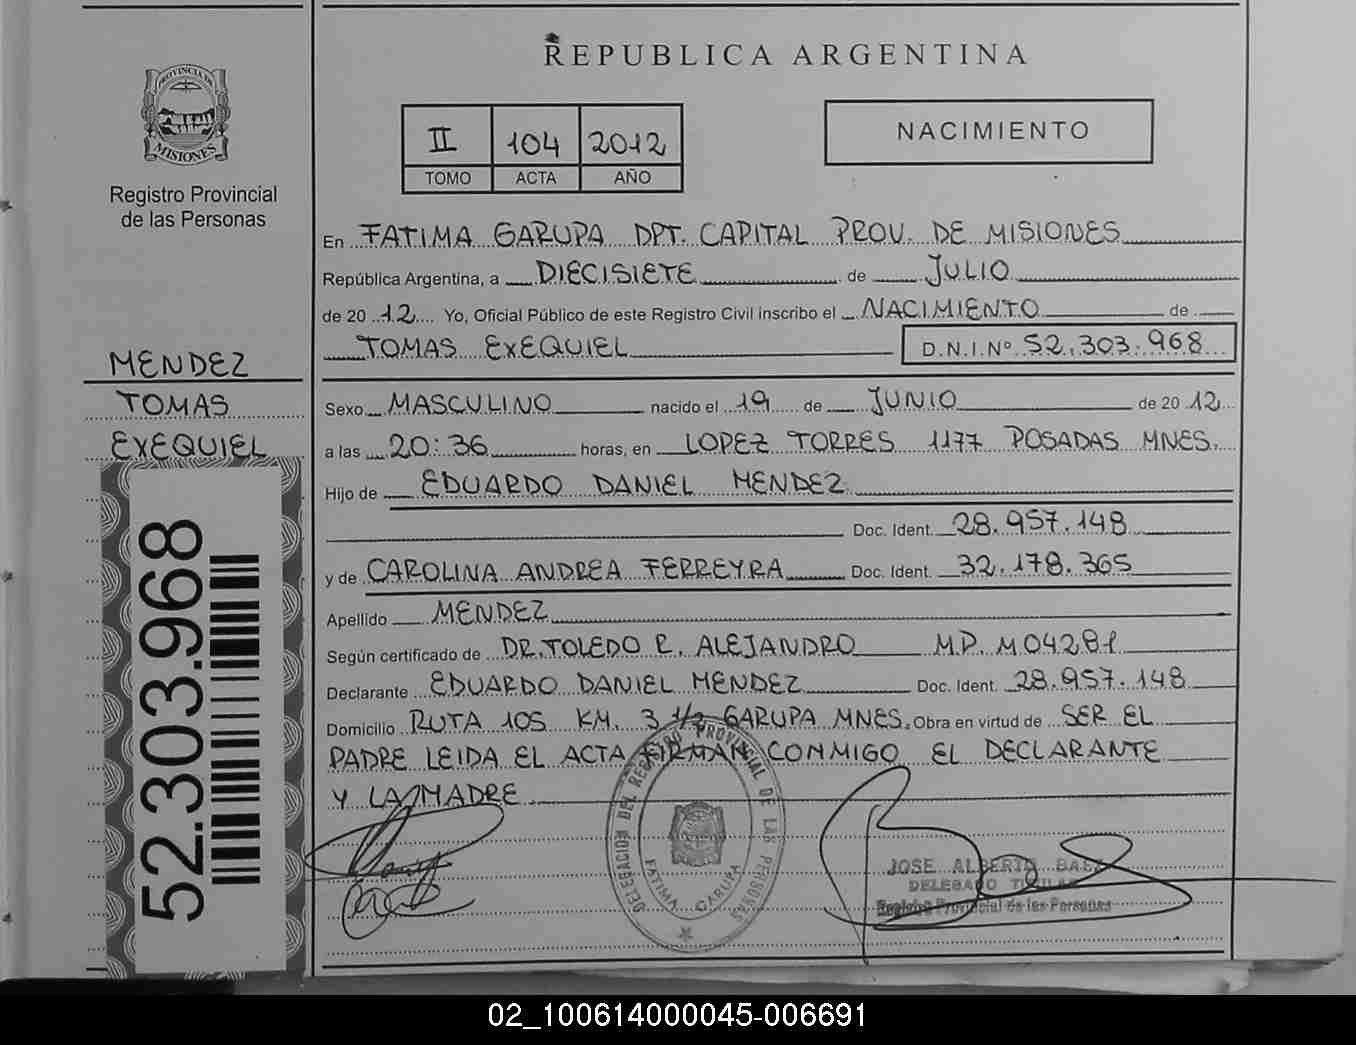 PROVINCIA DE
MISIONES
Registro Provincial
de las Personas
MENDEZ
TOMAS
EXEQUIEL
52.303.968
REPUBLICA ARGENTINA
II 104 2012
TOMO ACTA AÑO
NACIMIENTO
En FATIMA GARUPA DPT. CAPITAL PROV. DE MISIONES
República Argentina, a DIECISIETE de JULIO
de 20 12 Yo, Oficial Público de este Registro Civil inscribo el NACIMIENTO de
TOMAS EXEQUIEL D.N.I.Nº 52.303.968
Sexo MASCULINO nacido el 19 de JUNIO de 20 12
a las 20:36 horas, en LOPEZ TORRES 1177 POSADAS MNES.
Hijo de EDUARDO DANIEL MENDEZ
Doc. Ident. 28.957.148
y de CAROLINA ANDREA FERREYRA Doc. Ident. 32.178.365
Apellido MENDEZ
Según certificado de DR. TOLEDO R. ALEJANDRO M.P. M04281
Declarante EDUARDO DANIEL MENDEZ Doc. Ident. 28.957.148
Domicilio RUTA 105 KM. 3 1/2 GARUPA MNES. Obra en virtud de SER EL
PADRE LEIDA EL ACTA FIRMAN CONMIGO EL DECLARANTE
Y LA MADRE
DELEGACION DEL REGISTRO PROVINCIAL DE LAS PERSONAS
FATIMA GARUPA
JOSE ALBERTO BAEZ
DELEGADO TITULAR
Registro Provincial de las Personas
02_100614000045-006691